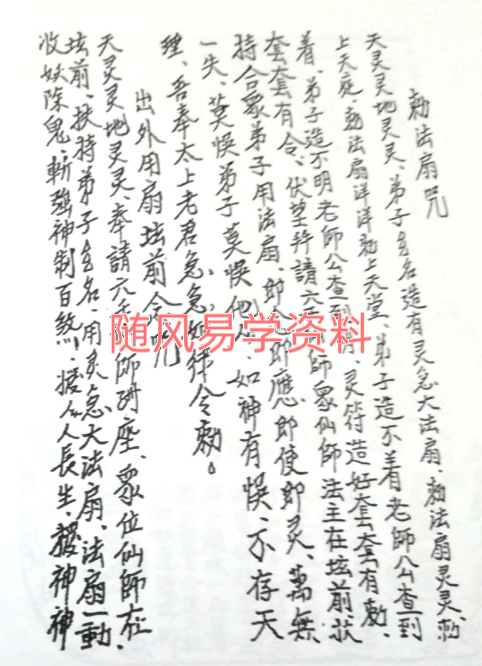 勅法扇咒
天灵灵地灵灵、弟子玄名造有灵急大法扇、勅法扇灵灵、勅
上天庭、勅法扇洋洋勅上天堂、弟子造不着老師公查到
着、弟子造不明老師公查到明、灵符造好套套有勅、
套套有令、伏望奉請六壬師眾仙師法主在坛前扶
持合眾弟子用法扇、即念即應、即使即灵、萬無
一失、莫悮弟子莫悮他人、如神有悮、不存天
理、吾奉太上老君急急如律令勅。
出外用扇坛前念咒
天灵灵地灵灵、奉請六壬師附座、眾位仙師在
坛前、扶持弟子玄名、用灵急大法扇、法扇一動
收妖除鬼、斬強神制百煞、援人長生、發神神
随风易学资料